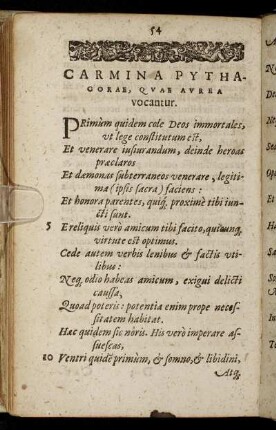 54
CARMINA PYTHA-
GORAE, QVAE AVREA
vocantur.
PRimùm quidem cole Deos immortales,
vt lege constitutum est,
Et venerare iusiurandum, deinde heroas
præclaros
Et dæmonas subterraneos venerare, legiti-
ma (ipsis sacra) faciens:
Et honora parentes, quiq; proximè tibi iun-
cti sunt.
5 E reliquis verò amicum tibi facito, quicunq;
virtute est optimus.
Cede autem verbis lenibus & factis vti-
libus:
Neq; odio habeas amicum, exigui delicti
caussa,
Quoad poteris: potentia enim prope neces-
sitatem habitat.
Hæc quidem sic nôris. His verò imperare as-
suescas,
10 Ventri quidē primùm, & somno, & libidini,
Atq;